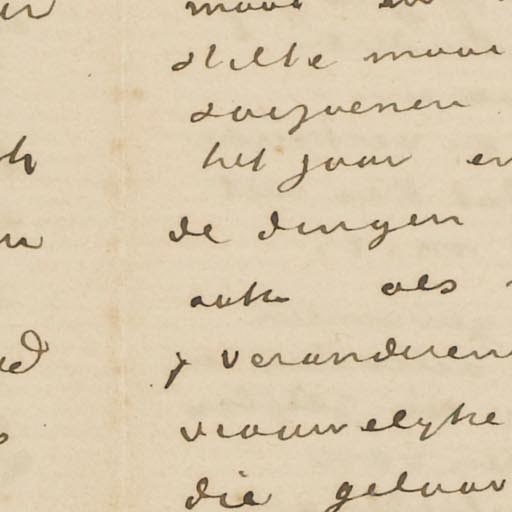 stille maar
saizoenen
het jaar en
de dingen
ook als
veranderen
vrouwelyke
die gelaar